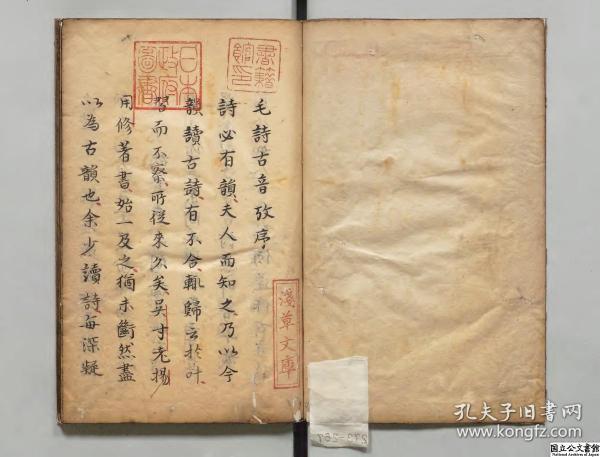 毛詩古音攷序
詩必有韻夫人而知之乃以今
韻讀古詩有不合輒歸之於叶
習而不察所從來久矣吳才老揚
用修著書始一及之猶未斷然盡
以為古韻也余少讀詩每深疑
日本
政府
圖書
書籍
館印
淺草文庫
孔夫子旧书网
www.kongfz.com
国立公文書館
National Archives of Japan